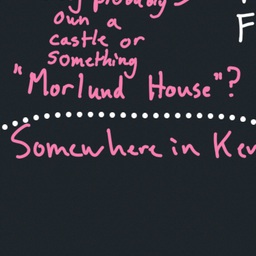 probably
own a
castle or
something
"Morlund House"?
Somewhere in
F